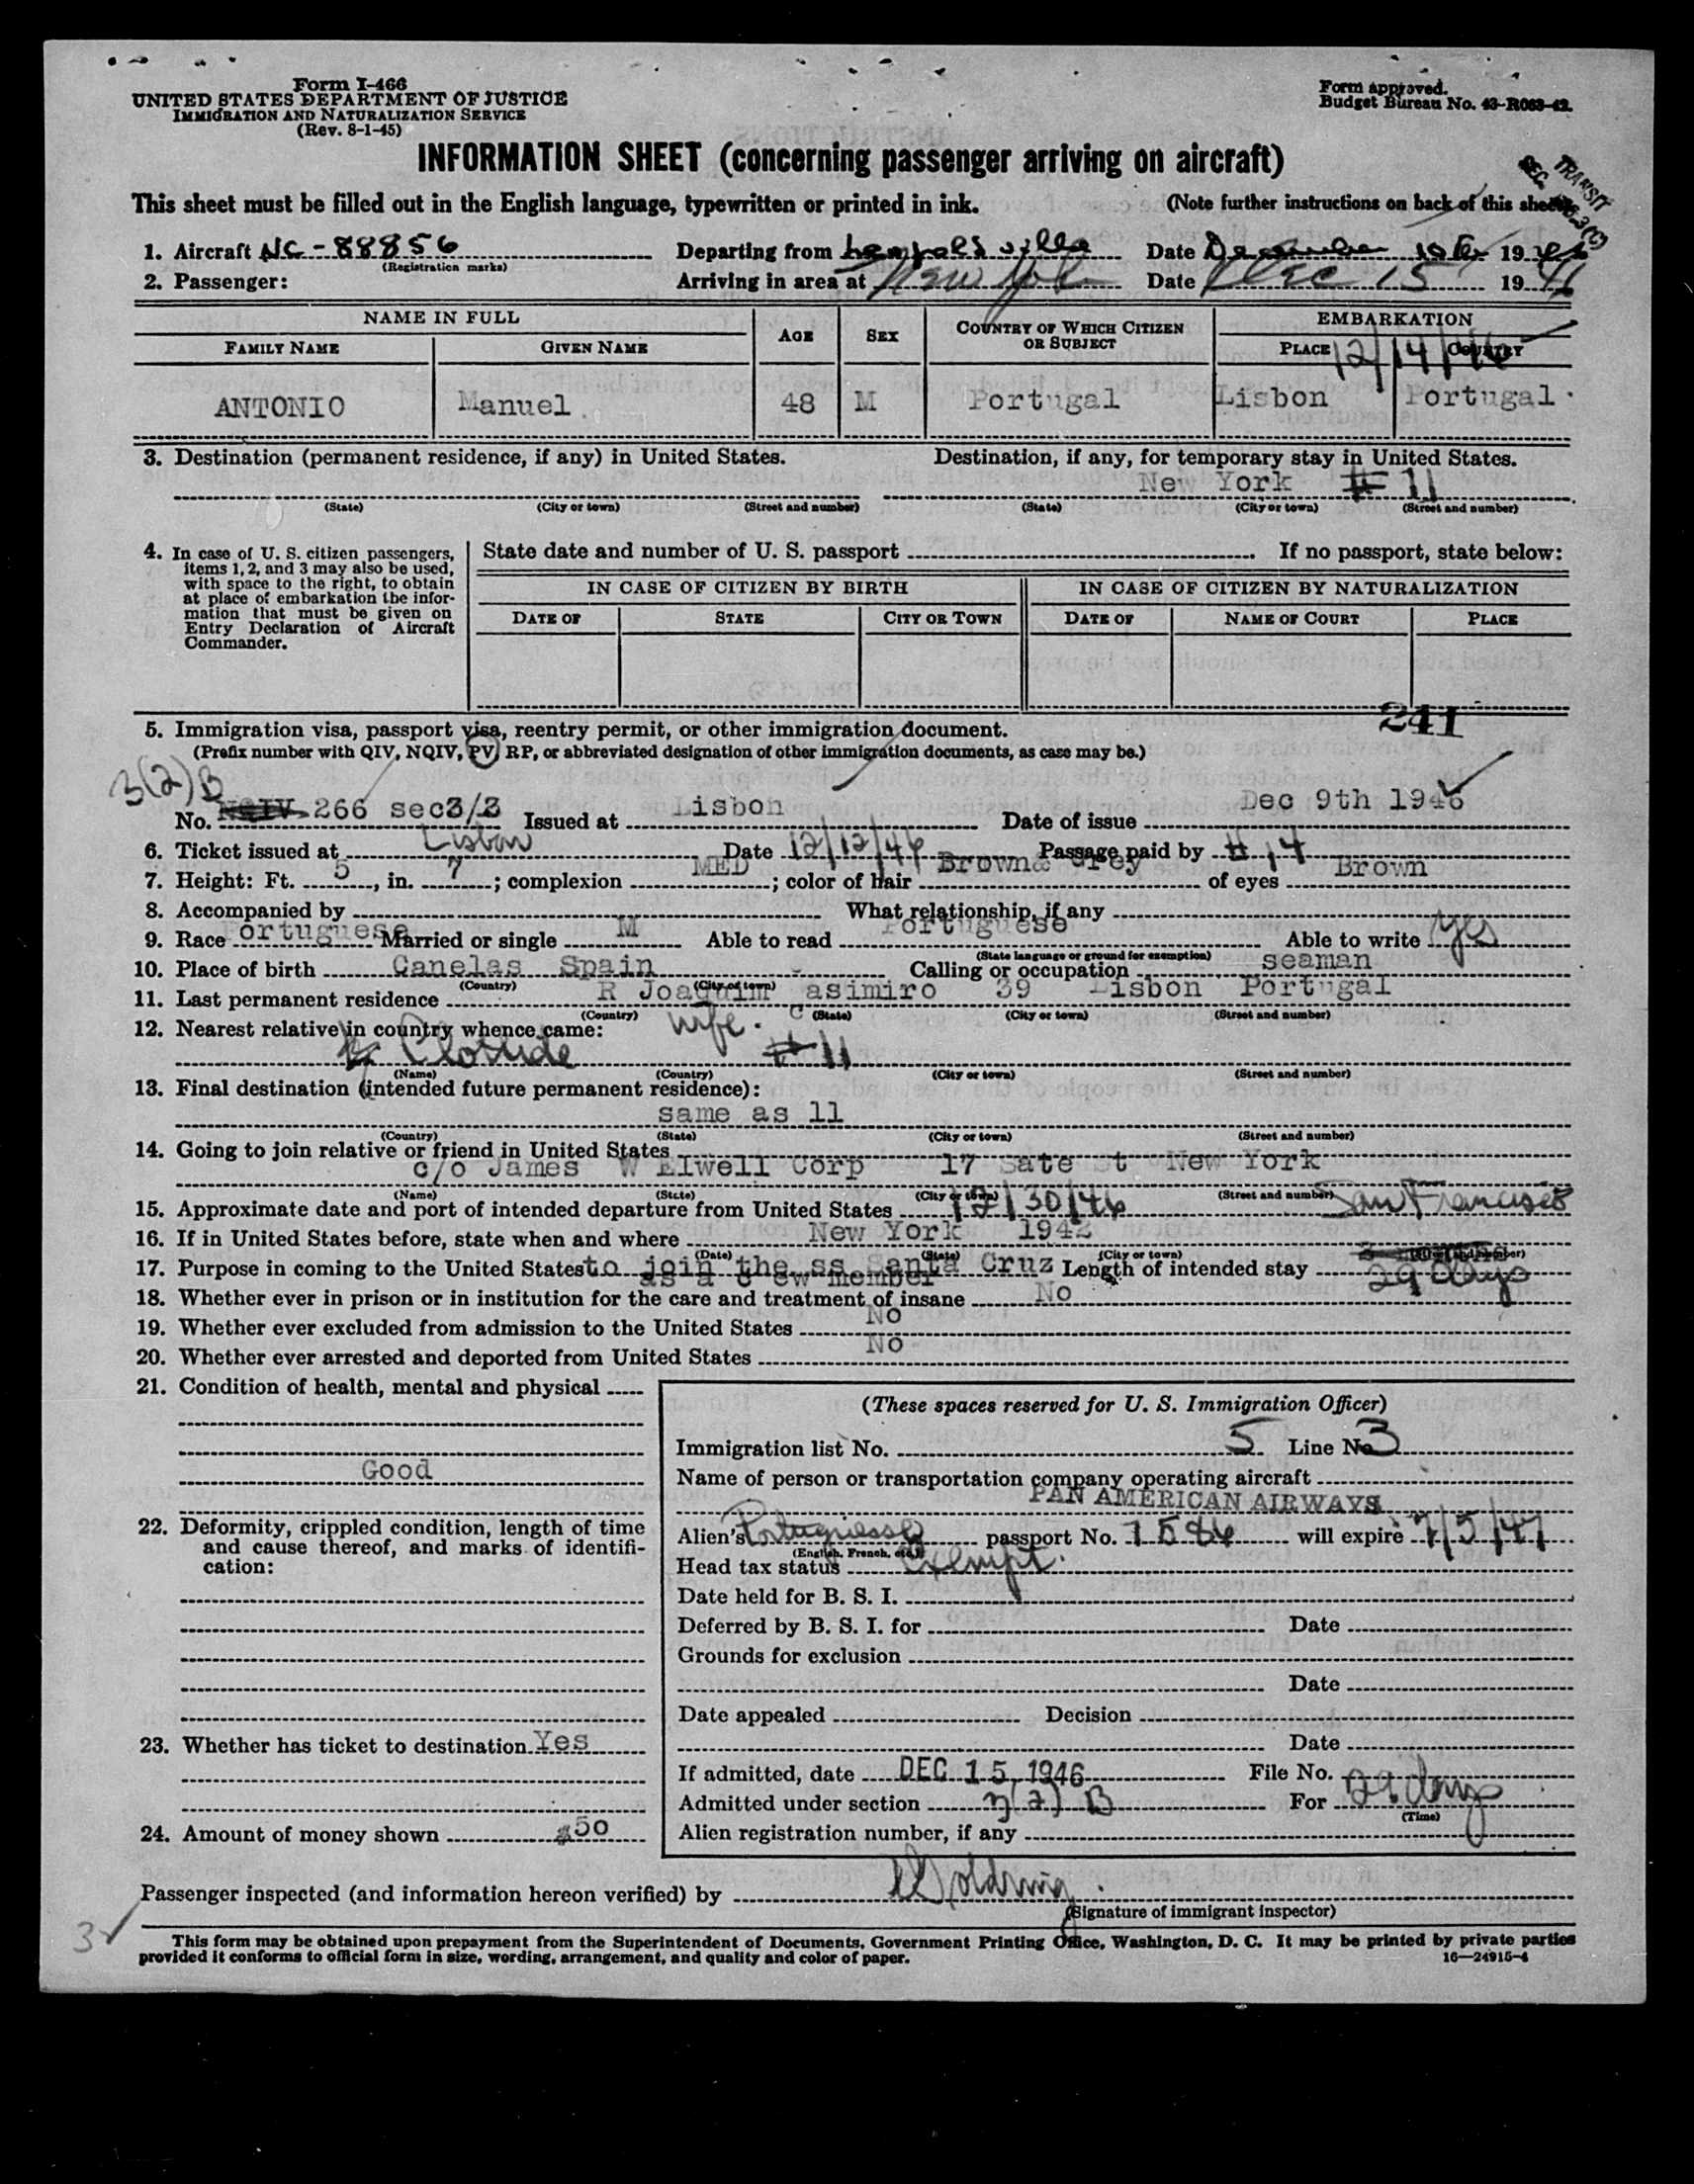 Form I-466
UNITED STATES DEPARTMENT OF JUSTICE
IMMIGRATION AND NATURALIZATION SERVICE
(Rev. 8-1-45)
Form approved.
Budget Bureau No. 43-R063-42.
INFORMATION SHEET (concerning passenger arriving on aircraft)
TRANSIT
This sheet must be filled out in the English language, typewritten or printed in ink. (Note further instructions on back of this sheet)
1. Aircraft NC-88856 Departing from Date December 19
(Registration marks)
2. Passenger: Arriving in area at New York Date Dec 15 19
NAME IN FULL AGE SEX COUNTRY OF WHICH CITIZEN OR SUBJECT EMBARKATION
FAMILY NAME GIVEN NAME PLACE COUNTRY
12/14/46
ANTONIO Manuel 48 M Portugal Lisbon Portugal
3. Destination (permanent residence, if any) in United States. Destination, if any, for temporary stay in United States.
New York # 11
(State) (City or town) (Street and number) (State) (City or town) (Street and number)
4. In case of U. S. citizen passengers, items 1, 2, and 3 may also be used, with space to the right, to obtain at place of embarkation the information that must be given on Entry Declaration of Aircraft Commander.
State date and number of U. S. passport If no passport, state below:
IN CASE OF CITIZEN BY BIRTH IN CASE OF CITIZEN BY NATURALIZATION
DATE OF STATE CITY OR TOWN DATE OF NAME OF COURT PLACE
241
5. Immigration visa, passport visa, reentry permit, or other immigration document.
(Prefix number with QIV, NQIV, PV, RP, or abbreviated designation of other immigration documents, as case may be.)
3(2)B
No. NQIV 266 sec3/3 Issued at Lisbon Date of issue Dec 9th 1946
6. Ticket issued at Lisbon Date 12/12/46 Passage paid by # 14
7. Height: Ft. 5, in. 7; complexion MED; color of hair Brown& Grey of eyes Brown
8. Accompanied by What relationship, if any
9. Race Portuguese Married or single M Able to read Portuguese Able to write yes
(State language or ground for exemption)
10. Place of birth Canelas Spain Calling or occupation seaman
(Country) (City or town)
11. Last permanent residence R Joaquim Casimiro 39 Lisbon Portugal
(Country) (State) (City or town) (Street and number)
12. Nearest relative in country whence came: wife.
Clotilde # 11
(Name) (Country) (City or town) (Street and number)
13. Final destination (intended future permanent residence):
same as 11
(Country) (State) (City or town) (Street and number)
14. Going to join relative or friend in United States
c/o James W Elwell Corp 17 Sate St New York
(Name) (State) (City or town) (Street and number)
15. Approximate date and port of intended departure from United States 12/30/46 San Francisco
16. If in United States before, state when and where New York 1942
(Date) (State) (City or town) (Street and number)
17. Purpose in coming to the United States to join the ss Santa Cruz Length of intended stay 29 days
as a crew member
18. Whether ever in prison or in institution for the care and treatment of insane No
19. Whether ever excluded from admission to the United States No
20. Whether ever arrested and deported from United States No
21. Condition of health, mental and physical
Good
22. Deformity, crippled condition, length of time and cause thereof, and marks of identification:
23. Whether has ticket to destination Yes
24. Amount of money shown $50
(These spaces reserved for U. S. Immigration Officer)
Immigration list No. 5 Line No. 3
Name of person or transportation company operating aircraft
PAN AMERICAN AIRWAYS
Alien's Portuguese passport No. 1584 will expire 7/5/47
(English, French, etc.)
Head tax status Exempt.
Date held for B. S. I.
Deferred by B. S. I. for Date
Grounds for exclusion
Date
Date appealed Decision
Date
If admitted, date DEC 15 1946 File No.
Admitted under section 3(2) B For 29 days
(Time)
Alien registration number, if any
Passenger inspected (and information hereon verified) by
(Signature of immigrant inspector)
3
This form may be obtained upon prepayment from the Superintendent of Documents, Government Printing Office, Washington, D. C. It may be printed by private parties
provided it conforms to official form in size, wording, arrangement, and quality and color of paper. 16—24915-4